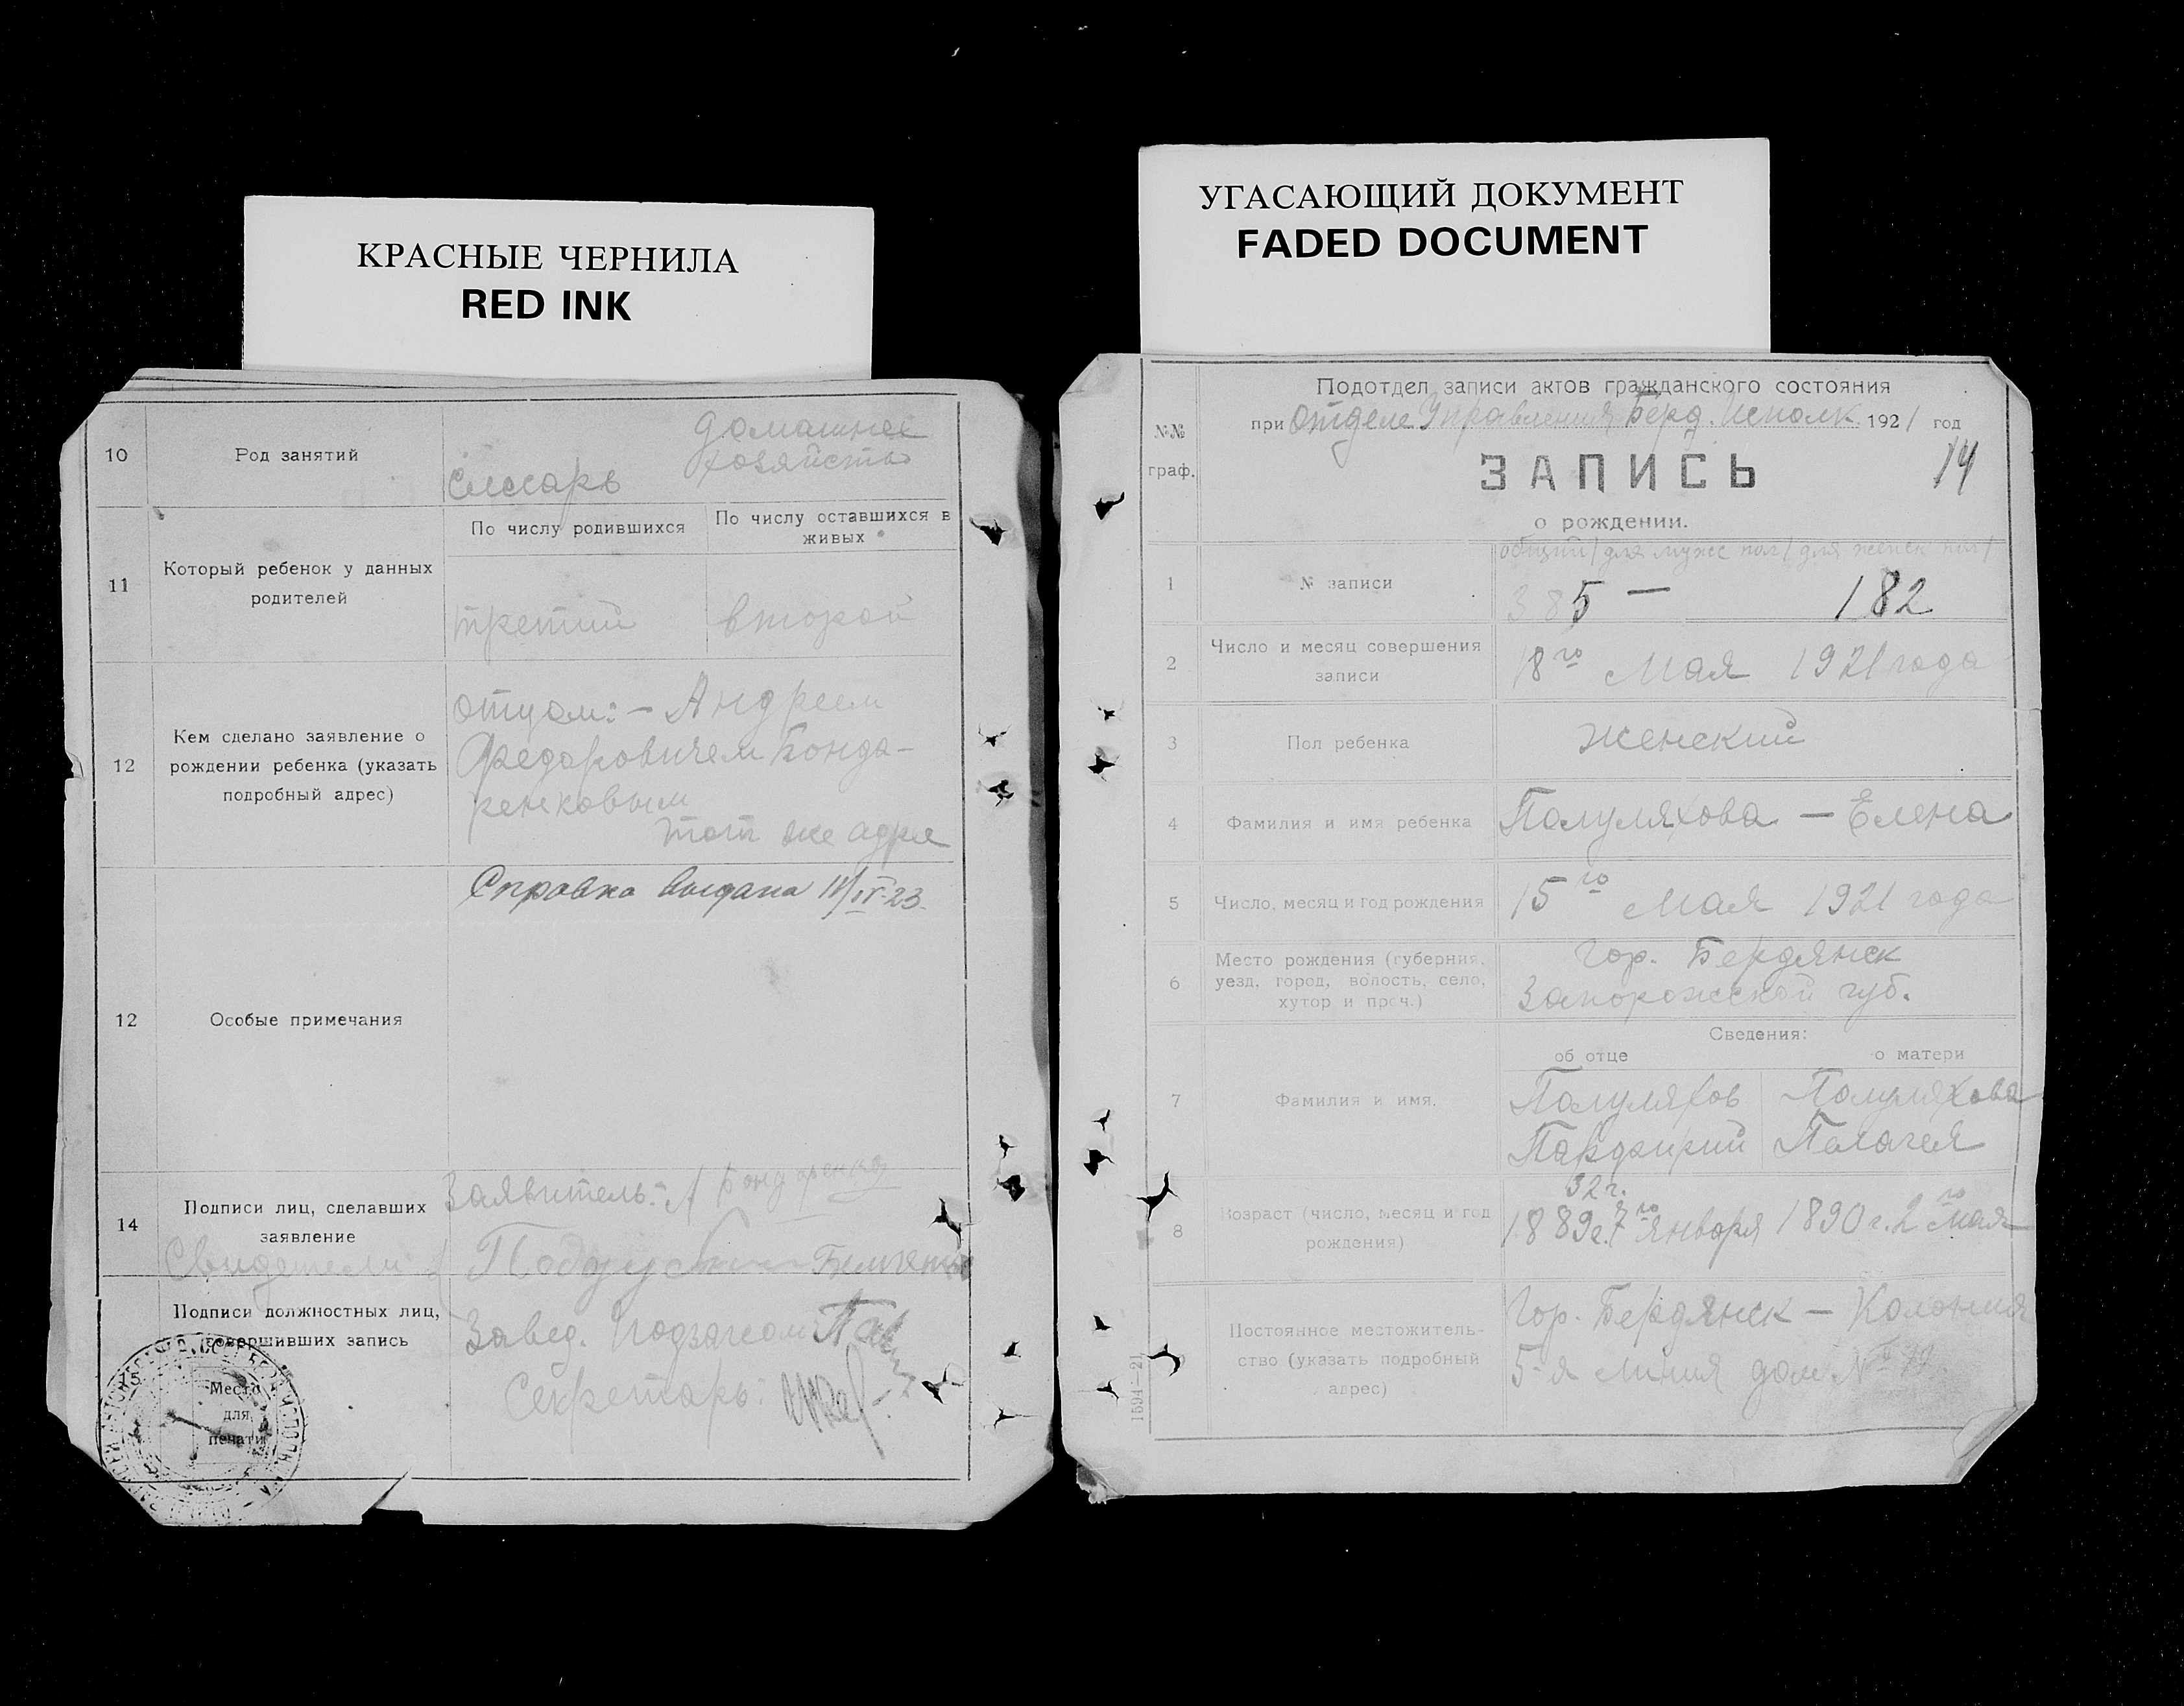 КРАСНЫЕ ЧЕРНИЛА
RED INK
10
Род занятий
Слесарь
домашнее
хозяйство
11
Который ребенок у данных
родителей
По числу родившихся
По числу оставшихся в
живых
третий
второй
12
Кем сделано заявление о
рождении ребенка (указать
подробный адрес)
отцом: – Андреем
Федоровичем Бонда-
ренковым
тот же адре
12
Особые примечания
Справка выдана
14
Подписи лиц, сделавших
заявление
Свидетели
Заявитель:-
Подписи должностных лиц,
совершивших запись
Завед. Подзагсом
Секретарь:
Место
для
печати
УГАСАЮЩИЙ ДОКУМЕНТ
FADED DOCUMENT
№№
граф.
Подотдел записи актов гражданского состояния
при Отделе Управления Берд. Исполк. 1921 год
14
ЗАПИСЬ
о рождении.
1
№ записи
общий / для мужс пол / для женск пол /
385 — 182
2
Число и месяц совершения
записи
18го Мая 1921 года
3
Пол ребенка
Женский
4
Фамилия и имя ребенка
Полуляхова — Елена
5
Число, месяц и год рождения
15го Мая 1921 года
6
Место рождения (губерния,
уезд, город, волость, село,
хутор и проч.)
Гор. Бердянск
Запорожской губ.
Сведения:
об отце
о матери
7
Фамилия и имя.
Полуляхов
Парфирий
Полуляхова
Палагея
8
Возраст (число, месяц и год
рождения)
32 г.
1889г. 7го Января
1890 г. 2го Мая
Постоянное местожитель-
ство (указать подробный
адрес)
Гор. Бердянск — Колония
5-я линия дом №
1594—21